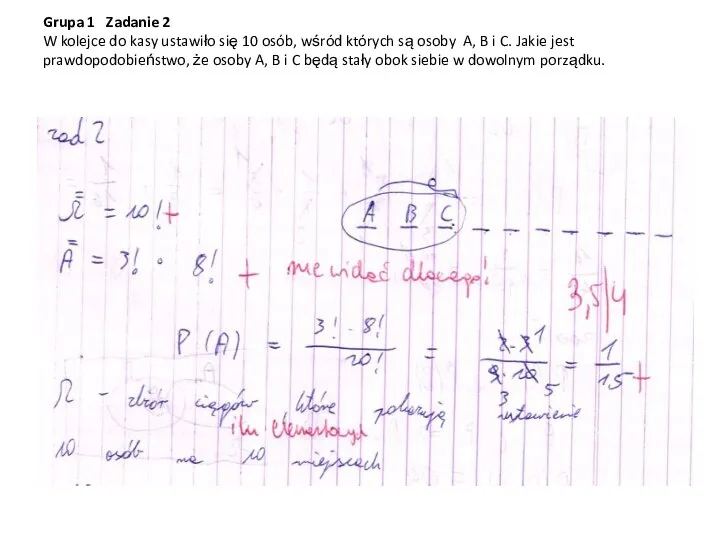 Grupa 1 Zadanie 2
W kolejce do kasy ustawiło się 10 osób, wśród których są osoby A, B i C. Jakie jest
prawdopodobieństwo, że osoby A, B i C będą stały obok siebie w dowolnym porządku.
zad 2
Ω = 10! +
A B C _ _ _ _ _ _ _
A = 3! · 8! + nie widać dlaczego!
3,5/4
P(A) = 3! · 8! / 10! = 2·3 1 / 9·10 3 5 = 1/15 +
Ω - zbiór ciągów, które pokazują ustawienie
ilu elementowych
10 osób na 10 miejscach